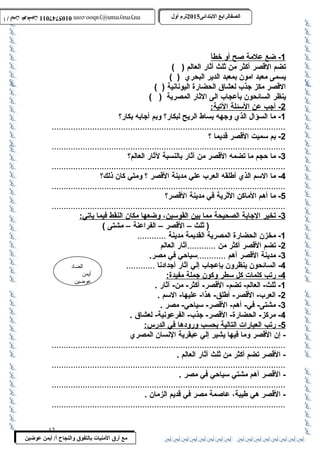 الصف الرابع الابتدائى2015ترم أول
mrmayman@yahoo.com 01057471101
1- ضع علامة صح أو خطأ
تضم الأقصر أكثر من ثلث أثار العالم ( )
يسمى معبد امون بمعبد الدير البحري ( )
الأقصر مركز جذب لعشاق الحضارة اليونانية ( )
ينظر السائحون بأعجاب إلى الاثار المصرية ( )
2- أجب عن الأسئلة الآتية:
1- ما السؤال الذي وجهه بساط الريح لبكار؟ وبم أجابه بكار؟
2- بم سميت الأقصر قديما ؟
3- ما حجم ما تضمه الأقصر من أثار بالنسبة لأثار العالم؟
4- ما الاسم الذي أطلقه العرب علي مدينة الأقصر ؟ ومتي كان ذلك؟
5- ما أهم الأماكن الأثرية في مدينة الأقصر؟
3- تخير الإجابة الصحيحة مما بين القوسين، وضعها مكان النقط فيما يأتى:
( ثلث – الأقصر – الفراعنة – مشتى )
1- مخزن الحضارة المصرية القديمة مدينة ............
2- تضم الأقصر أكثر من ............أثار العالم
3- مدينة الأقصر أهم ............سياحي في مصر.
4- السائحون ينظرون بإعجاب إلي أثار أجدادنا ............
أيمن
عوضين
4- رتب كلمات كل سطر وكون جملة مفيدة:
1- ثلث- العالم- تضم- الأقصر- أكثر- من- أثار .
2- العرب- الأقصر- أطلق- هذا- عليها- الاسم .
3- مشتي- في- أهم- الأقصر- سياحي- مصر .
4- مركز- الحضارة- الأقصر- جذب- الفرعونية- لعشاق .
5- رتب العبارات التالية بحسب ورودها في الدرس:
- إن الأقصر وما فيها يشير إلي عبقرية الإنسان المصري
- الأقصر تضم أكثر من ثلث أثار العالم .
- الأقصر أهم مشتي سياحي في مصر .
- الأقصر هي طيبة، عاصمة مصر في قديم الزمان .
مع أرق الأمنيات بالتفوق والنجاح أ/ أيمن عوضين